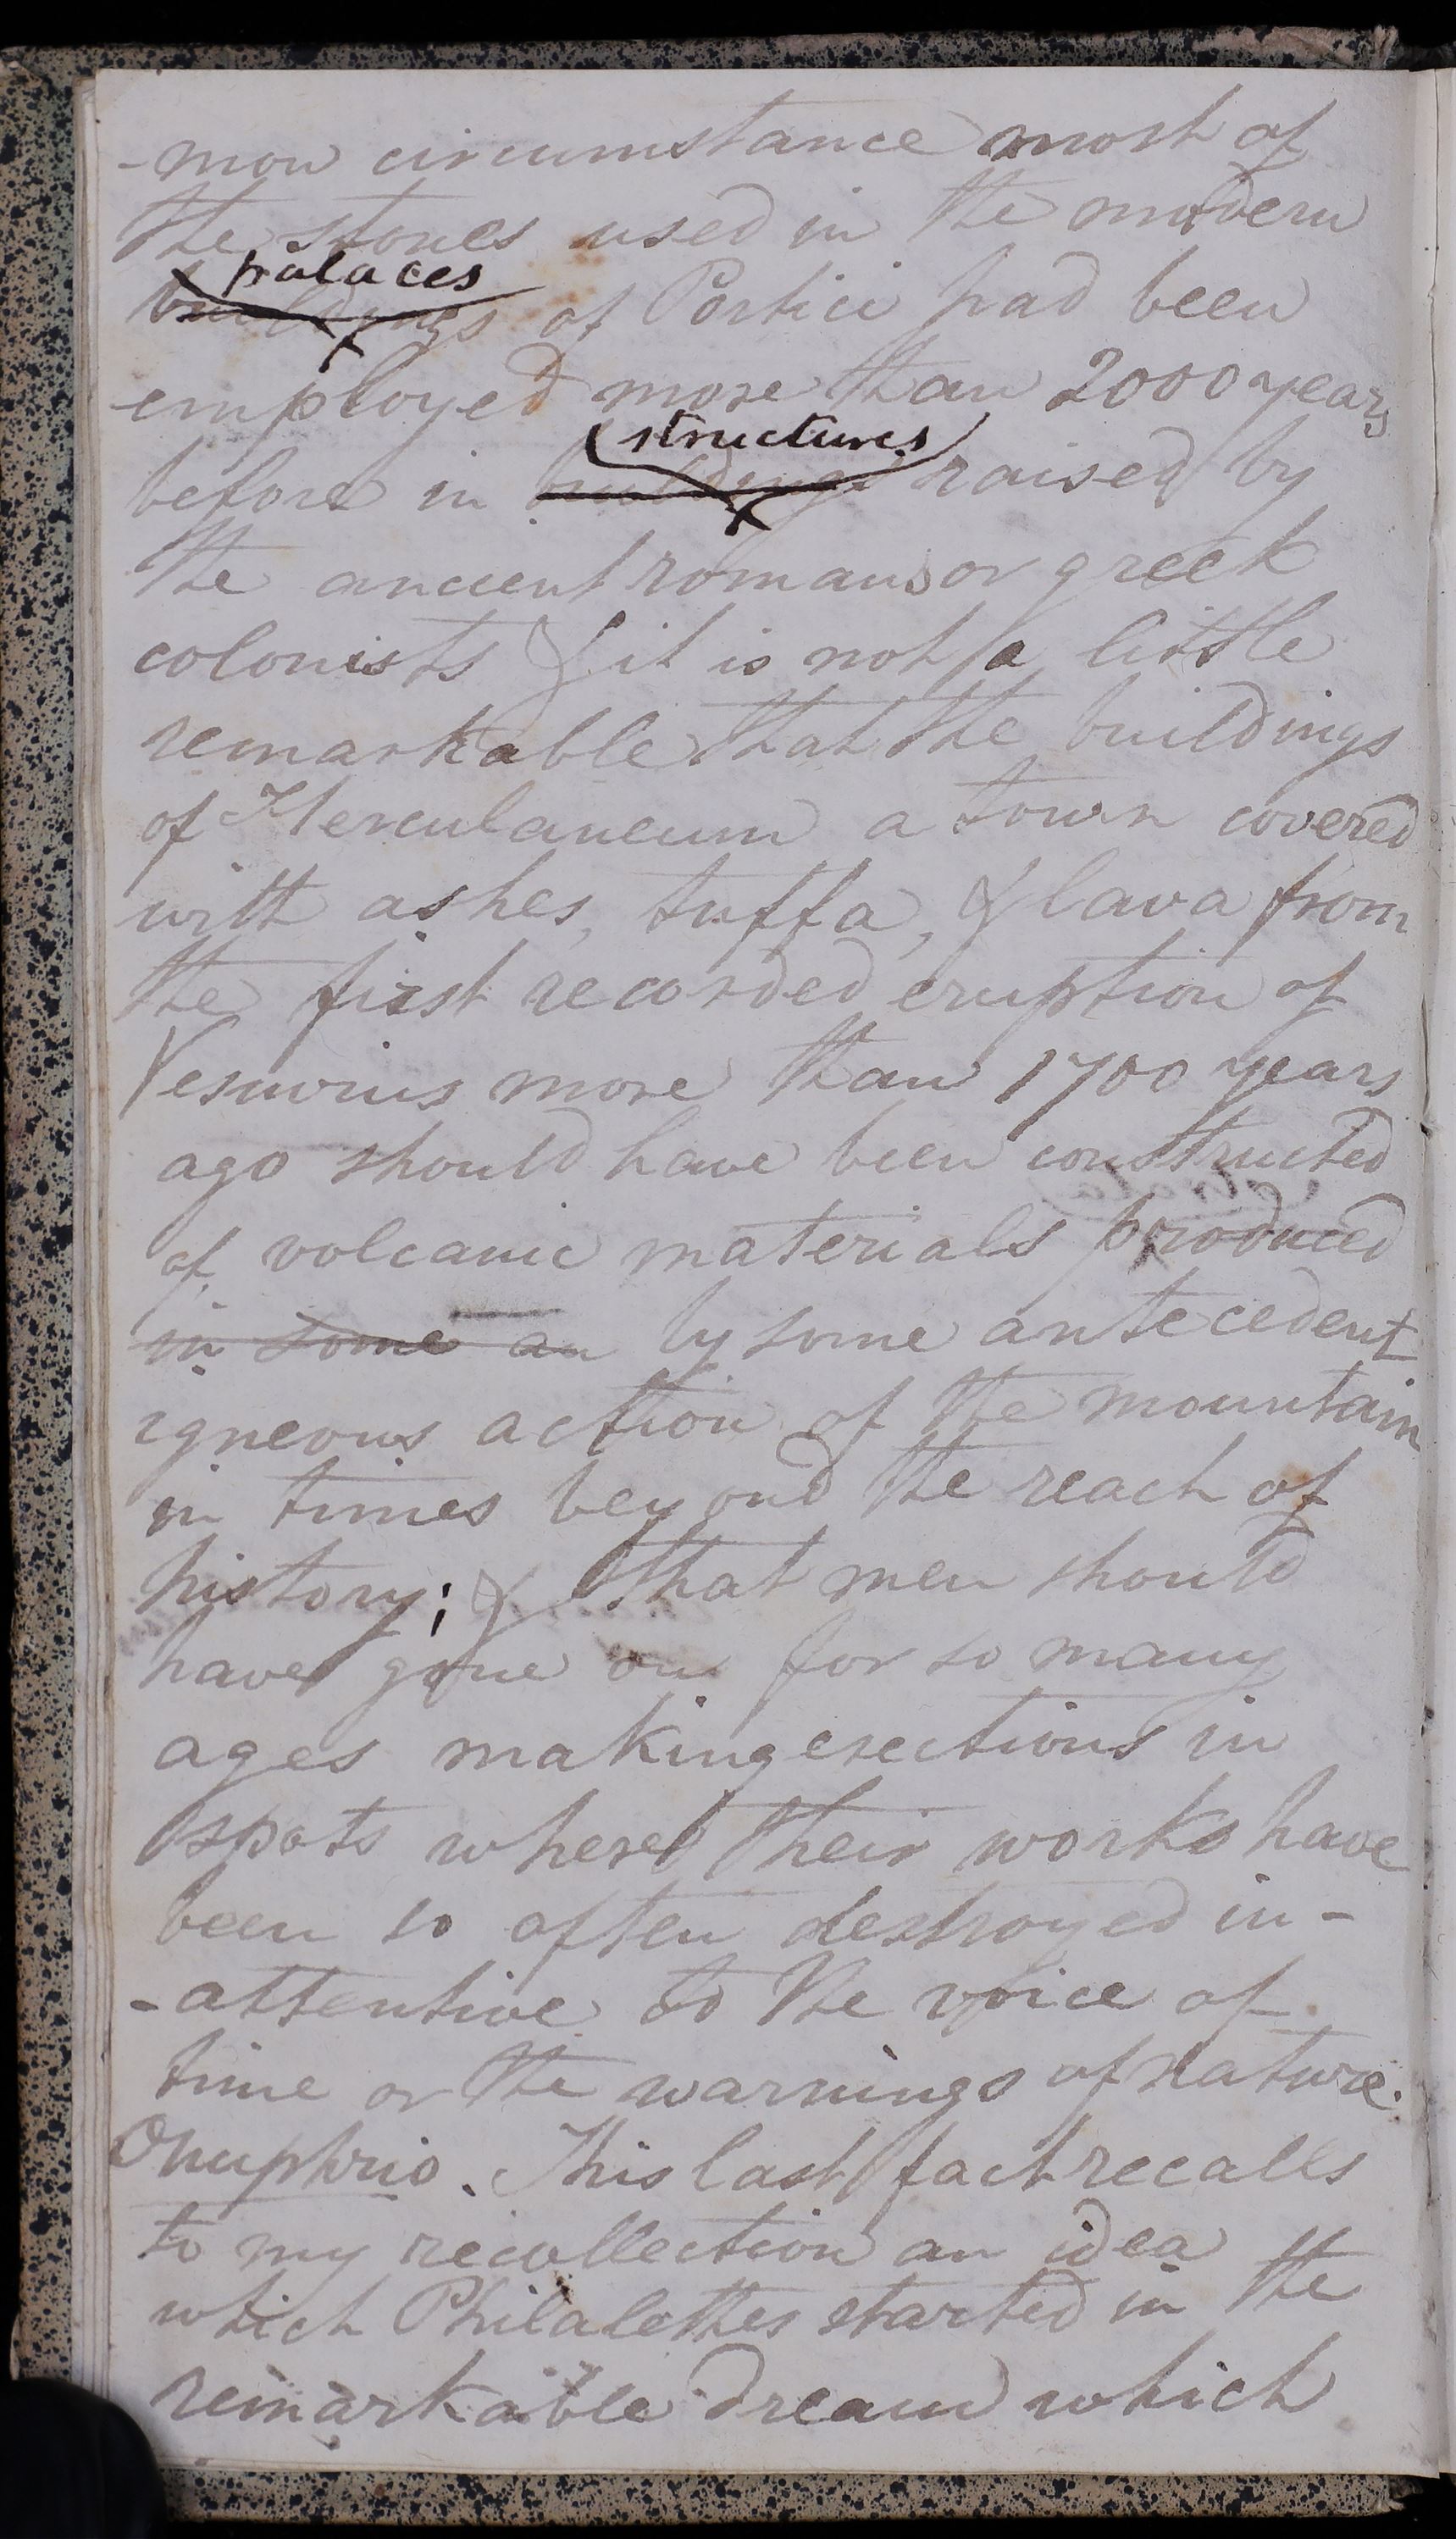 -mon circumstance most of
the stones used in the modern
palaces
buildings of Portici had been
employed more than 2000 years
structures
before in buildings raised by
the ancient romans or greek
colonists & it is not a little
remarkable that the buildings
of Herculaneum a town covered
with ashes, tuffa, & lava from
the first recorded eruption of
Vesuvius more than 1700 years
ago should have been constructed
of volcanic materials produced
in some an by some antecedent
igneous action of the mountain
in times beyond the reach of
history; & that men should
have gone on for so many
ages making erections in
spots where their works have
been so often destroyed in-
-attentive to the voice of
time or the warnings of nature.
Onuphrio. This last fact recalls
to my recollection an idea
which Philalethes started in the
remarkable dream which